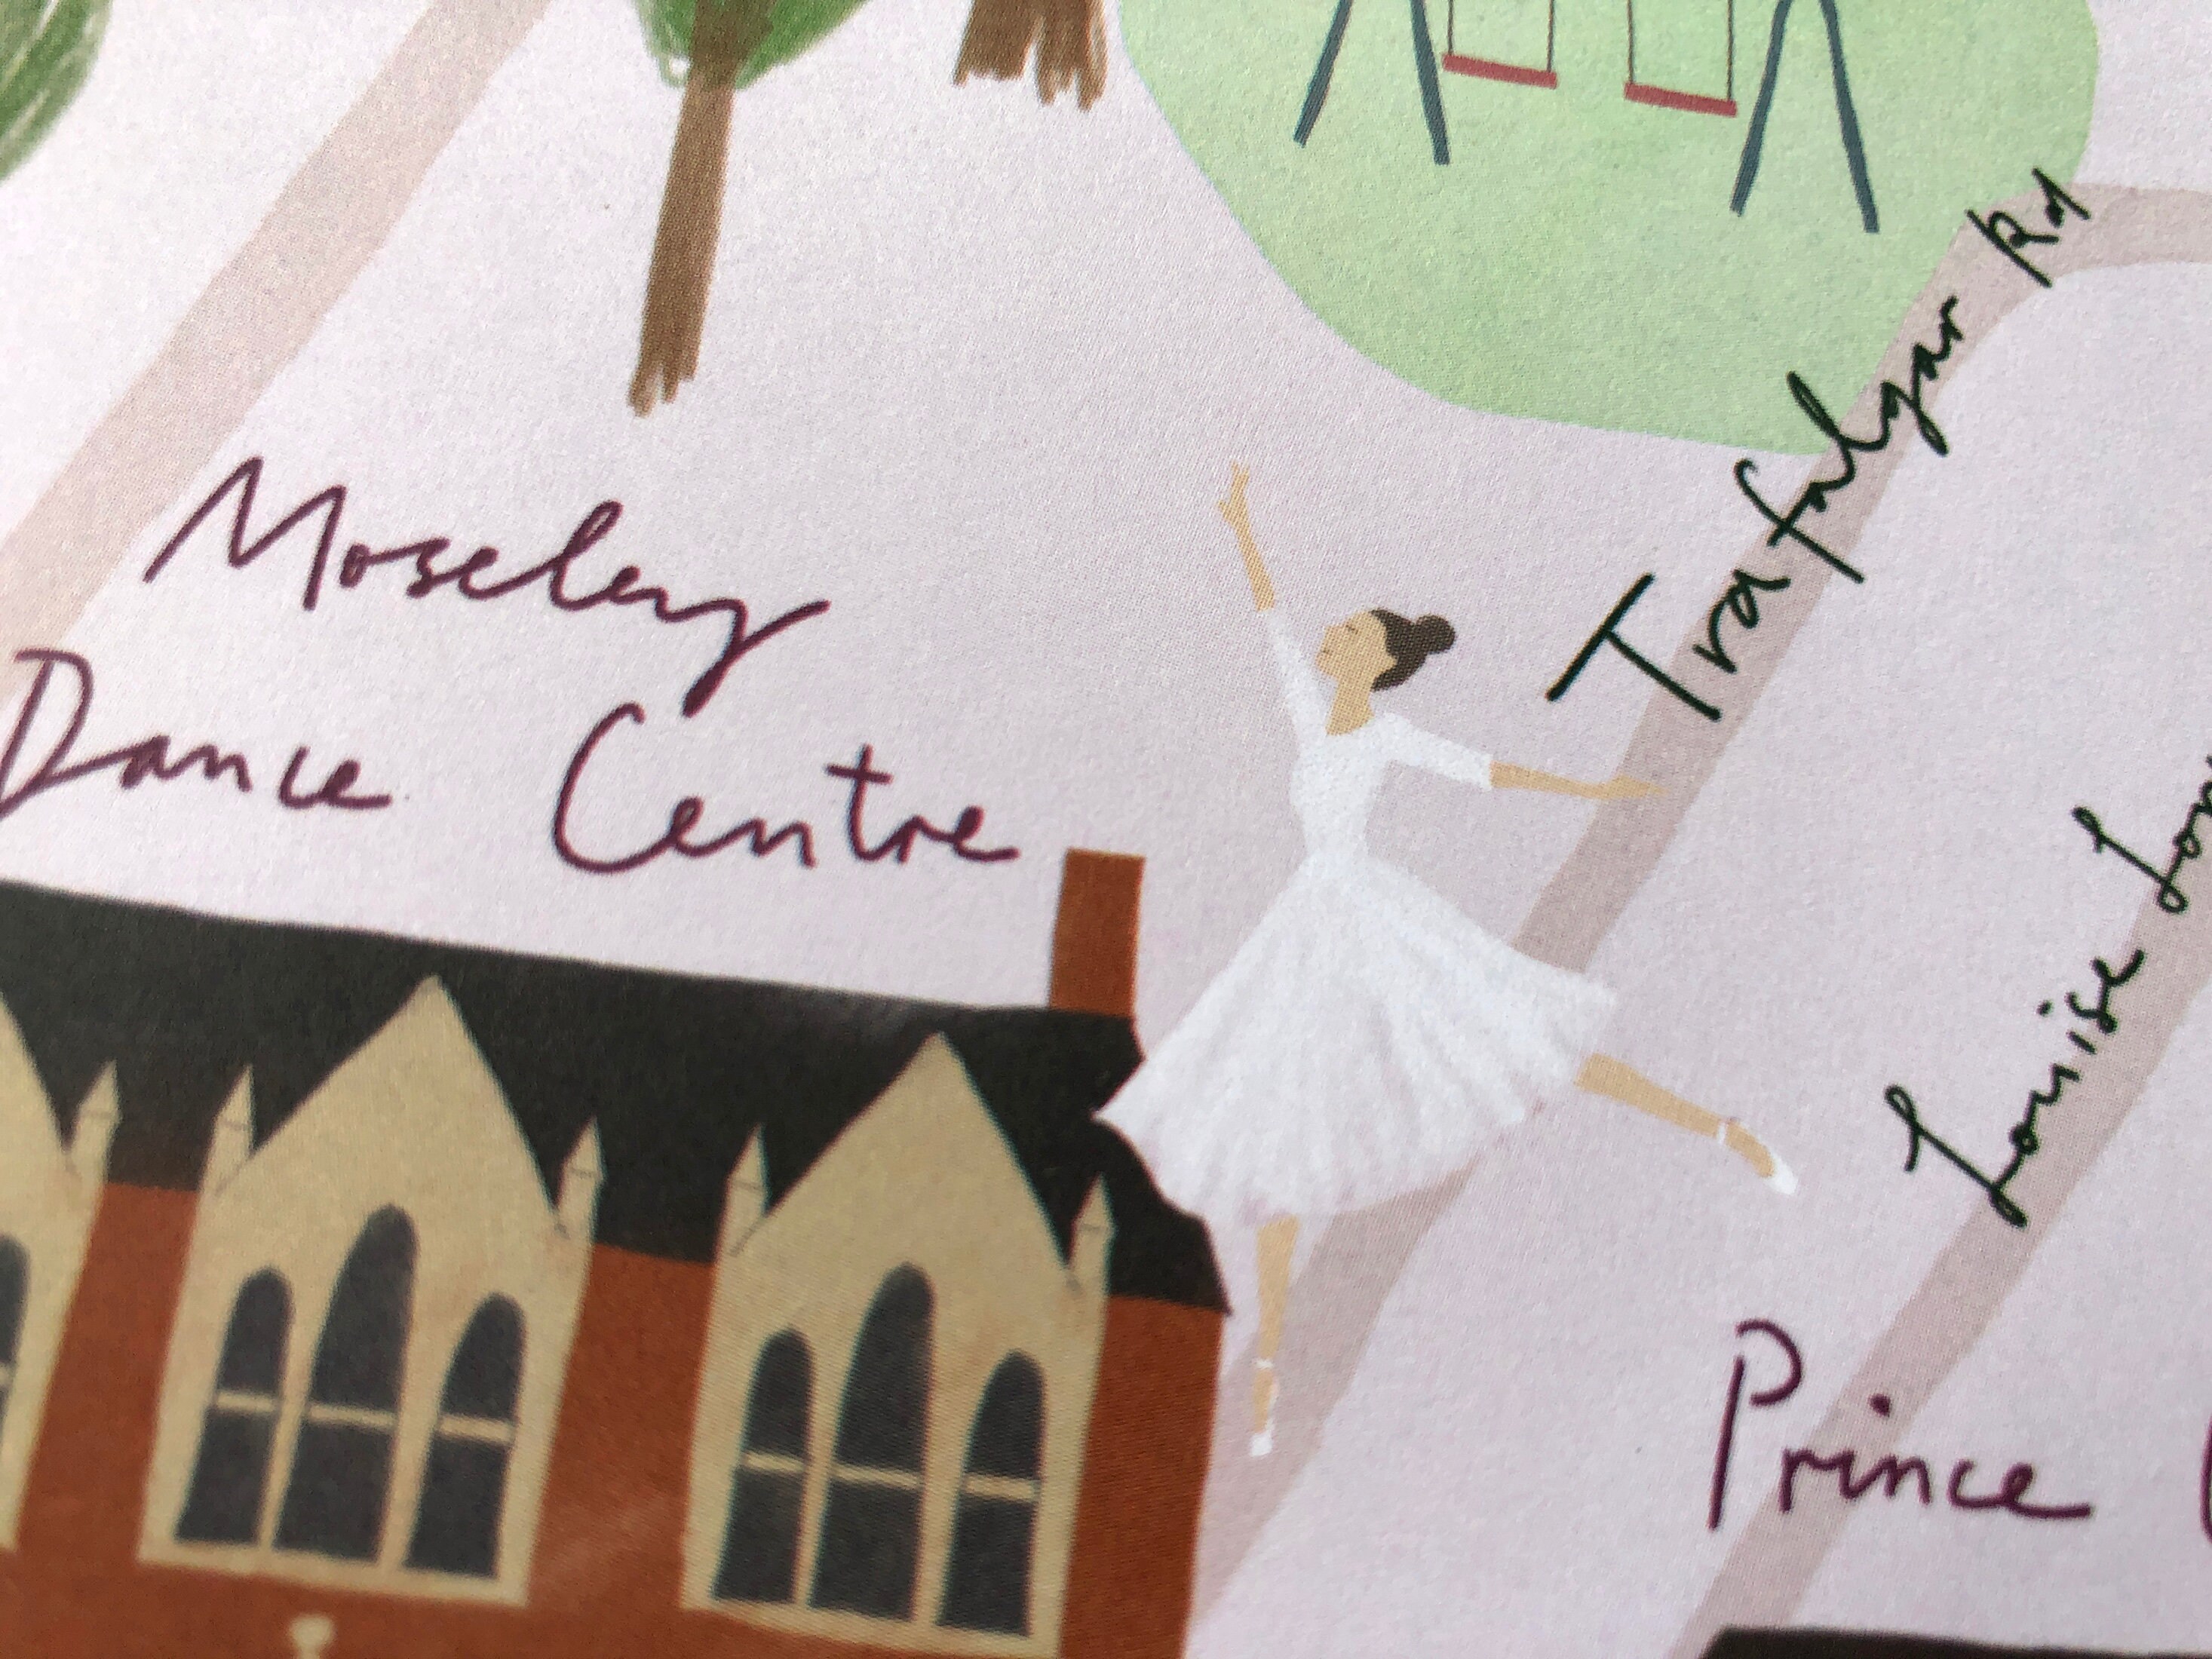 Moseley
Dance Centre
Trafalgar Rd
Louise
Prince